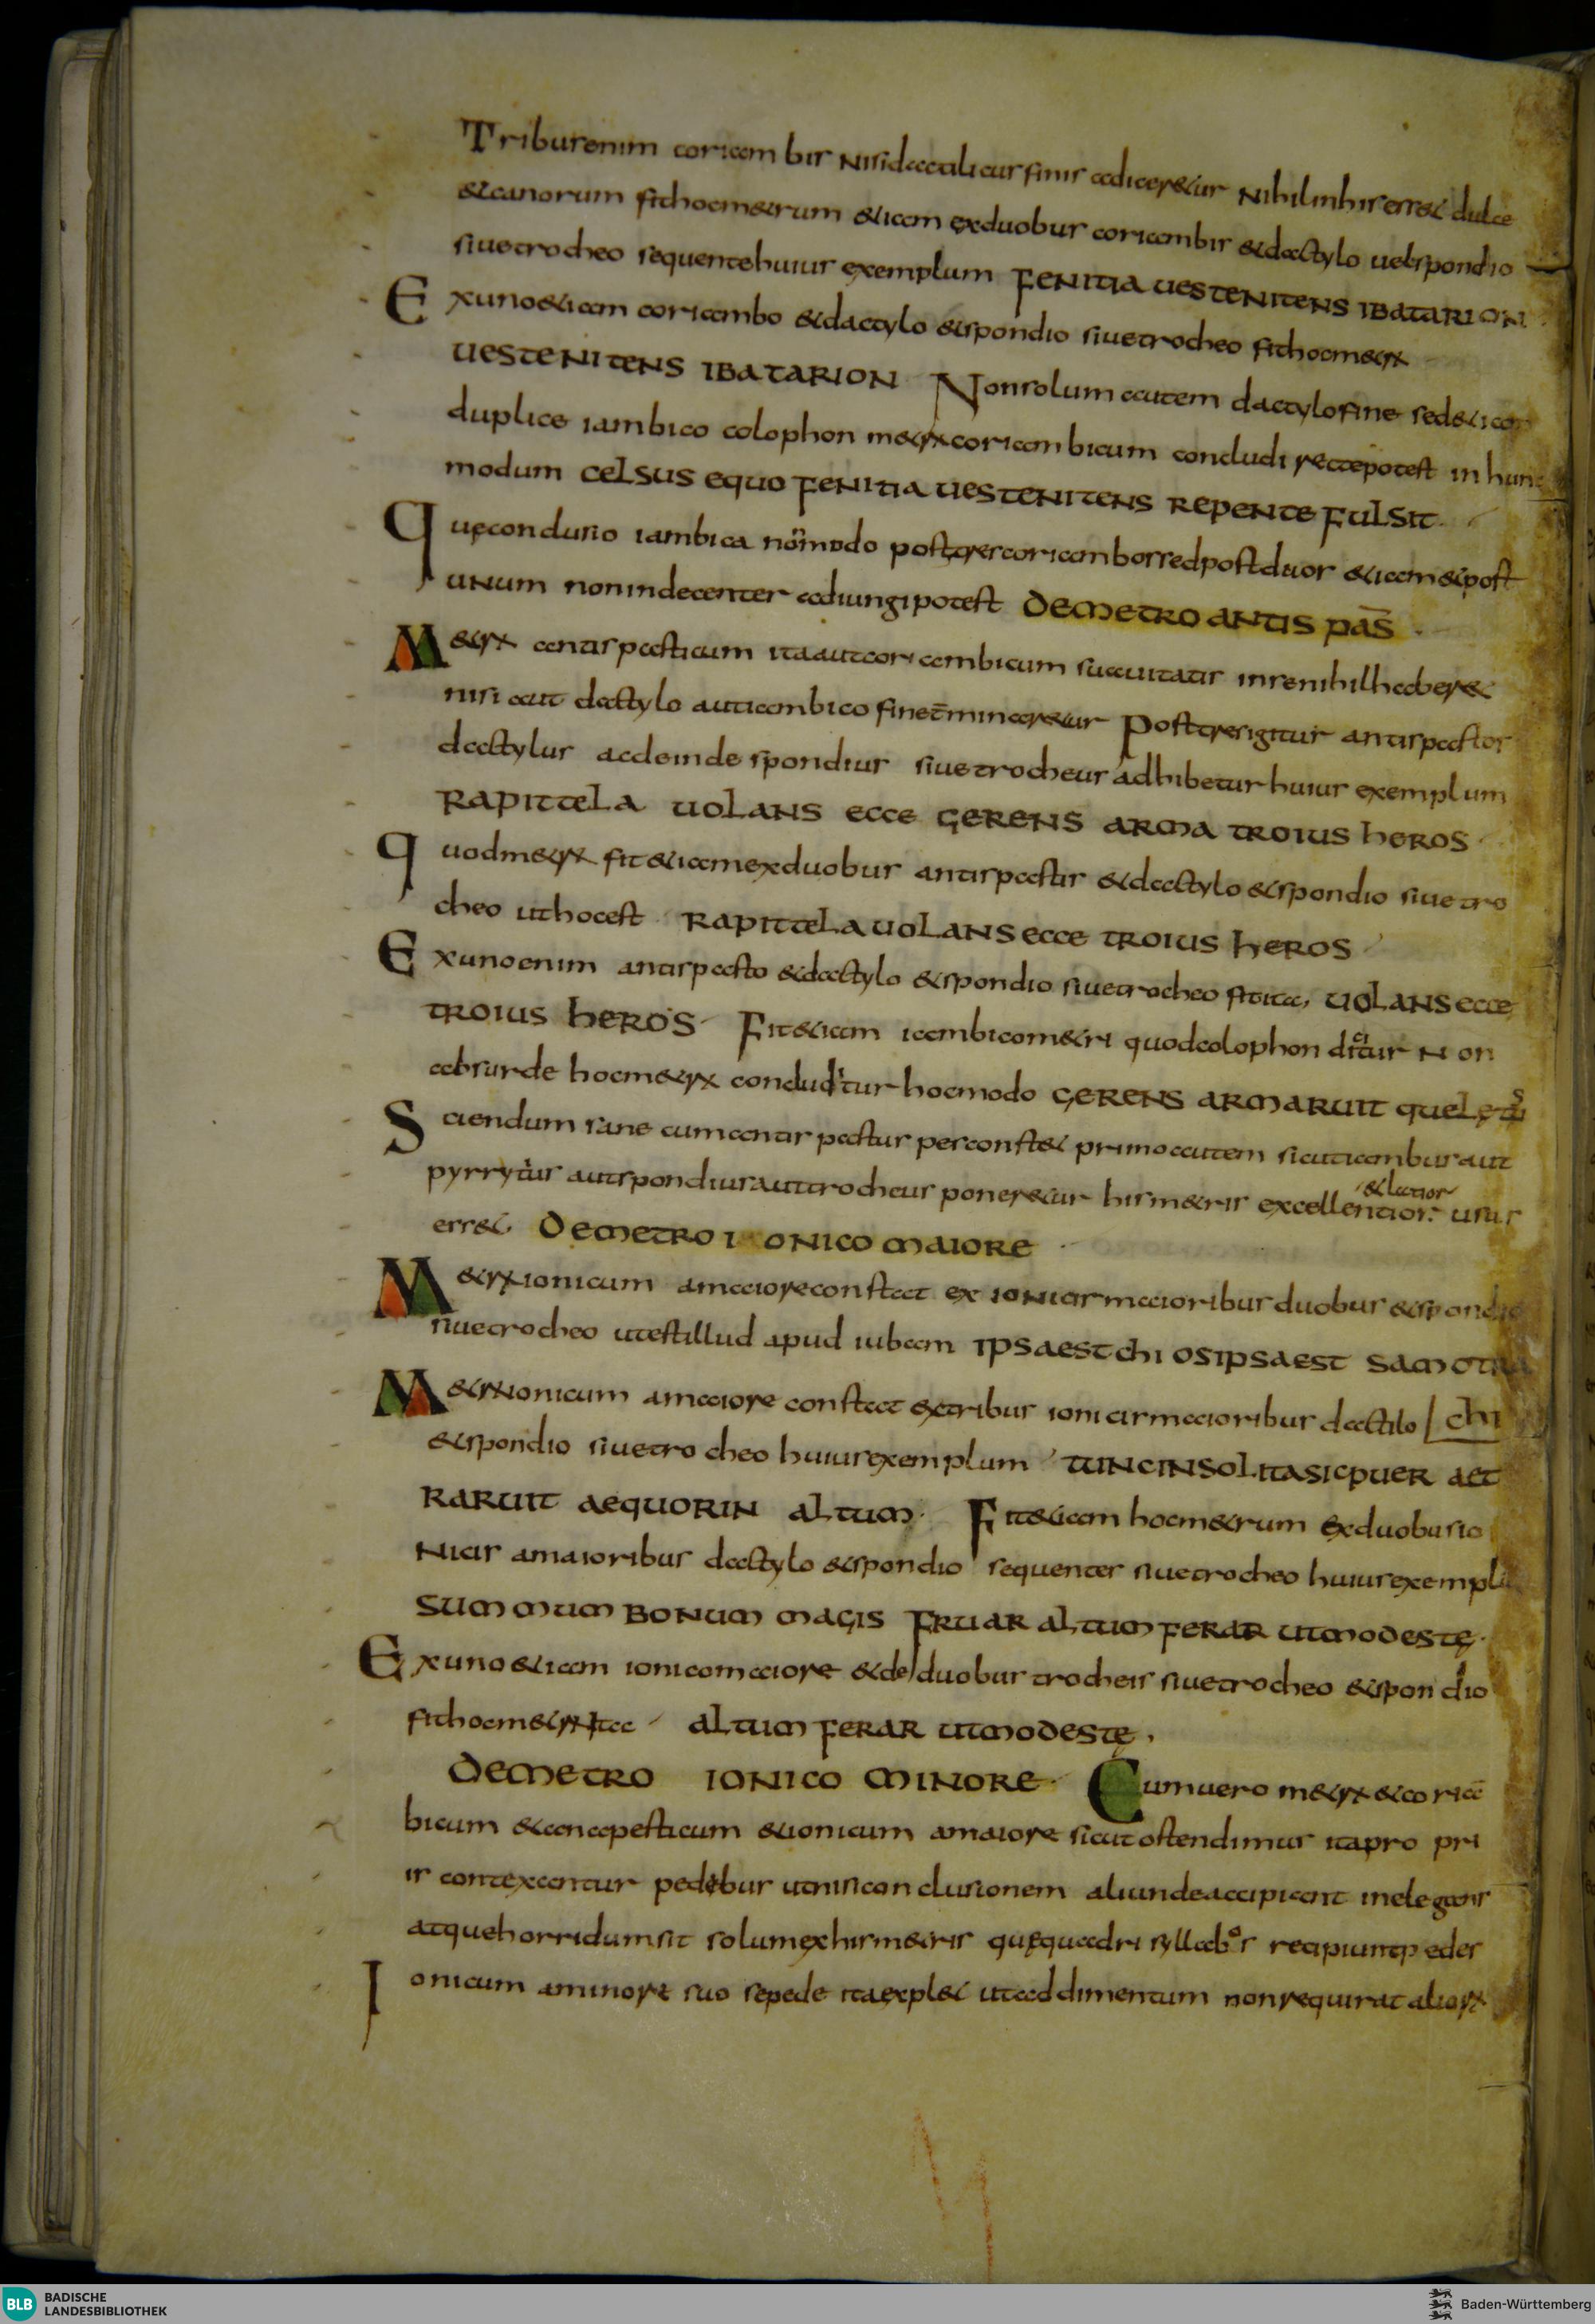 Tribus enim coriambis nisi dactalicus finis adiceretur nihil in his esset dulce
& canorum fit hoc metrum etiam ex duobus coriambis & dactylo uel spondio
siue trocheo sequente huius exemplum FENITIA UESTE NITENS IBAT ARION
Ex uno etiam coriambo & dactylo & spondio siue trocheo fit hoc metrum
UESTE NITENS IBAT ARION Non solum autem dactylo fine sed etiam
duplice iambico colophon metrum coriambicum concludi recte potest in hunc
modum CELSUS EQUO FENITIA UESTE NITENS REPENTE FULSIT
Que condusio iambica nõ modo post tres coriambos sed post duos etiam & post
unum non indecenter adiungi potest DE METRO ANTISPAS̄
Metrum antispasticum ita aut coriambicum suauitatis in re nihil haberet
nisi aut dactylo aut iambico fine t̄minaretur Post tres igitur antispastos
dactylus ac deinde spondius siue trocheus adhibetur huius exemplum
RAPIT TELA UOLANS ECCE GERENS ARMA TROIUS HEROS
quod metrum fit etiam ex duobus antispastis & dactylo & spondio siue tro
cheo ut hoc est RAPIT TELA UOLANS ECCE TROIUS HEROS
Ex uno enim antispasto & dactylo & spondio siue trocheo fit ita UOLANS ECCE
TROIUS HEROS Fit etiam iambico metri quod colophon dicitur Non
absurde hoc metrum conduditur hoc modo GERENS ARMA RUIT QUE LETUS
Sciendum sane cum antispastus per constet primo autem sicut iambus aut
pyrrytius aut spondius aut trocheus poneretur his metris excellentior & lætior usus
esset DE METRO IONICO MAIORE
Metrum ionicum a maiore constat ex ionicis maioribus duobus & spondio
siue trocheo ut est illud apud iubam IPSA EST CHIOS IPSA EST SAMOTRA
Metrum ionicum a maiore constat ex tribus ionicis maioribus dactilo chi
& spondio siue trocheo huius exemplum TUNC INSOLITA SIC PUER AET
RA RUIT AEQUOR IN ALTUM Fit etiam hoc metrum ex duobus io
nicis a maioribus dactylo & spondio sequenter siue trocheo huius exemplũ
SUMMUM BONUM MAGIS FRUAR ALTUM FERAR UT MODESTE
Ex uno etiam ionico maiore & de duobus trocheis siue trocheo & spondio
fit hoc metrum ita ALTUM FERAR UT MODESTE
DE METRO IONICO MINORE Cum uero metrum & coriā
bicum & anapesticum & ionicum a maiore sicut ostendimus ita pro pri
is contexantur pedibus ut nisi conclusionem aliunde accipiant inelegans
atque horridum sit solum ex his metris que quadrisyllabos recipiunt pedes
Ionicum a minore suo se pede ita explet ut addimentum non requirat aliorum